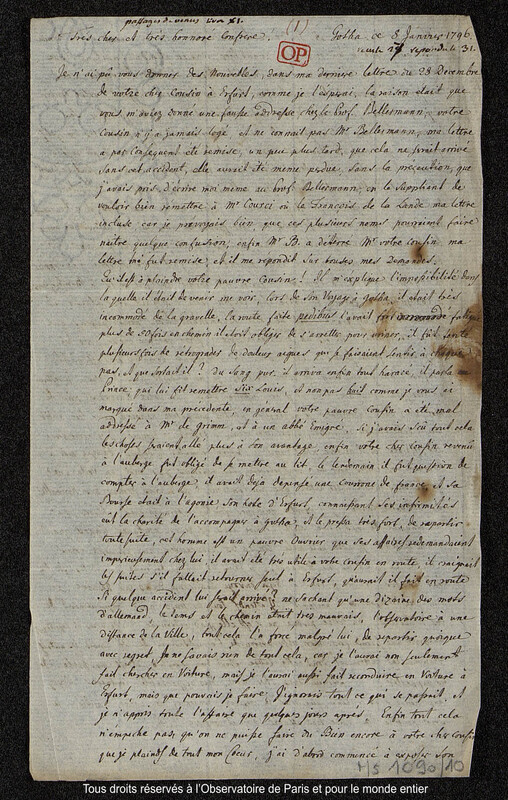 passages de venus Livre XI.
(1)
Très cher et très honnoré Confrere. Gotha ce 8 Janvier 1796.
OP
repondu le 31.
Je n'ai pu vous donner des Nouvelles, dans ma derniere lettre du 28 Decembre
de votre cher Cousin à Erfurt, comme je l'esperai, la raison etait que
vous m'aviez donné une fausse addresse chez le Prof. Bellermann; votre
Cousin n'y a jamais logé et ne connait pas Mr Bellermann, ma lettre
a par consequent été remise, un peu plus tard, que cela ne serait arrivé
sans cet accident, Elle aurait été meme perdue, sans la precaution, que
j'avais pris, d'ecrire moi meme au Prof. Bellermann, en le suppliant de
vouloir bien remettre à Mr Courci ou le François de la Lande ma lettre
incluse car je prevoyais bien que ces plusieurs noms pourraient faire
naitre quelque confusion, enfin Mr B. a deterré Mr votre cousin ma
lettre lui fut remise, et il me repondit sur toutes mes Demandes.
Eu! est à plaindre votre pauvre Cousin! Il m'explique l'impossibilité dans
la quelle il etait de venir me voir, lors de son Voyage à Gotha, il etait très
incommodé de la gravelle, la route faite pedibus l'avait fort fatigué
plus de 50 fois en chemin il etoit obligé de s'arretter pour uriner, il fut
plusieurs fois de retrogrades de douleur aigues qui se faisaient sentir à chaque
pas, et que sortait il? Du sang pur. il arriva enfin tout harassé, il parla au
Prince, qui lui fit remettre six Louis, et non pas huit comme je vous ai
marqué dans ma precedente, en general votre pauvre Cousin a eté mal
addressé à Mr de grimm, et à un abbé Emigré. Si j'avais sçu tout cela
les choses seraient allé plus à son avantage enfin votre cher cousin revenu
à l'auberge fut obligé de se mettre au lit, le lendemain il fut question de
compter à l'auberge; il avait deja depensé une couronne de france et sa
Bourse etait à l'agonie son hote d'Erfurt, connaissant ses infirmités
eut la charité de l'accompagner à gotha, et le pressa tres fort, de repartir
toute suite, cet homme est un pauvre Ouvrier que ses affaires redemandaient
imperieusement chez lui il avait été très utile à votre cousin en route, il craignait
les suites s'il fallait retourner seul à Erfurt, qu'aurait il fait en route
si quelque accident lui serait arrivé? ne sachant qu'une dizaine des mots
d'allemand, le tems et le chemin etait très mauvais, l'observatoire à une
distance de la Ville, tout cela l'a forcé malgré lui, de repartir quoique
avec regret. Je ne savais rien de tout cela, car je l'aurai non seulement
fait chercher en Voiture, mais je l'aurai aussi fait reconduire en Voiture à
Erfurt, mais que pouvois je faire, J'ignorais tout ce qui se passait. et
je n'appris toute l'affaire que quelques jours après. Enfin tout cela
n'empeche pas, qu'on ne puisse faire du Bien encore à votre cher Cousin
que je plains de tout mon Coeur, j'ai d'abord commencé à exposer son
Ms 1090/10
Tous droits réservés à l'Observatoire de Paris et pour le monde entier